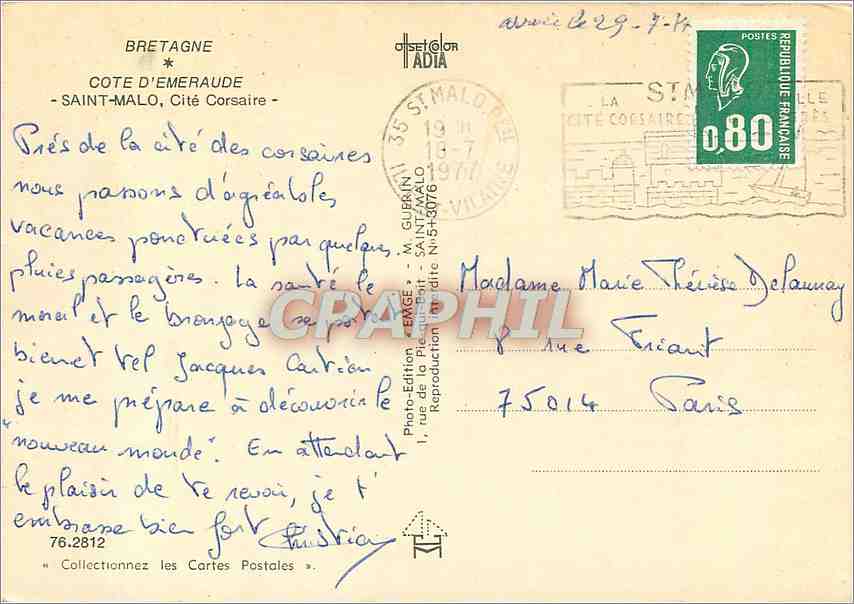 BRETAGNE
*
COTE D'EMERAUDE
- SAINT-MALO, Cité Corsaire -
Prés de la cité des corsaires
nous passons d'agréables
vacances ponctuées par quelques
pluies passagères. La santé le
moral et le bronzage se portent
bien et tel Jacques Cartier
je me prépare à découvrir le
"nouveau monde". En attendant
le plaisir de te revoir, je t'
embrasse bien fort
Christian
76.2812
« Collectionnez les Cartes Postales ».
offset color
IADIA
Photo-Edition « EMGE » - M. GUERIN
1, rue de la Pie-qui-Boit - SAINT-MALO
Reproduction interdite N° 5+3076
CPAPHIL
35 ST MALO PPAL
19 H
18-7
1977
ILLE-VILAINE
29-7-
LA
ST M
CITÉ CORSAIRE
POSTES
REPUBLIQUE FRANÇAISE
0,80
Madame Marie Thérèse Delaunay
8 rue Friant
75014 Paris